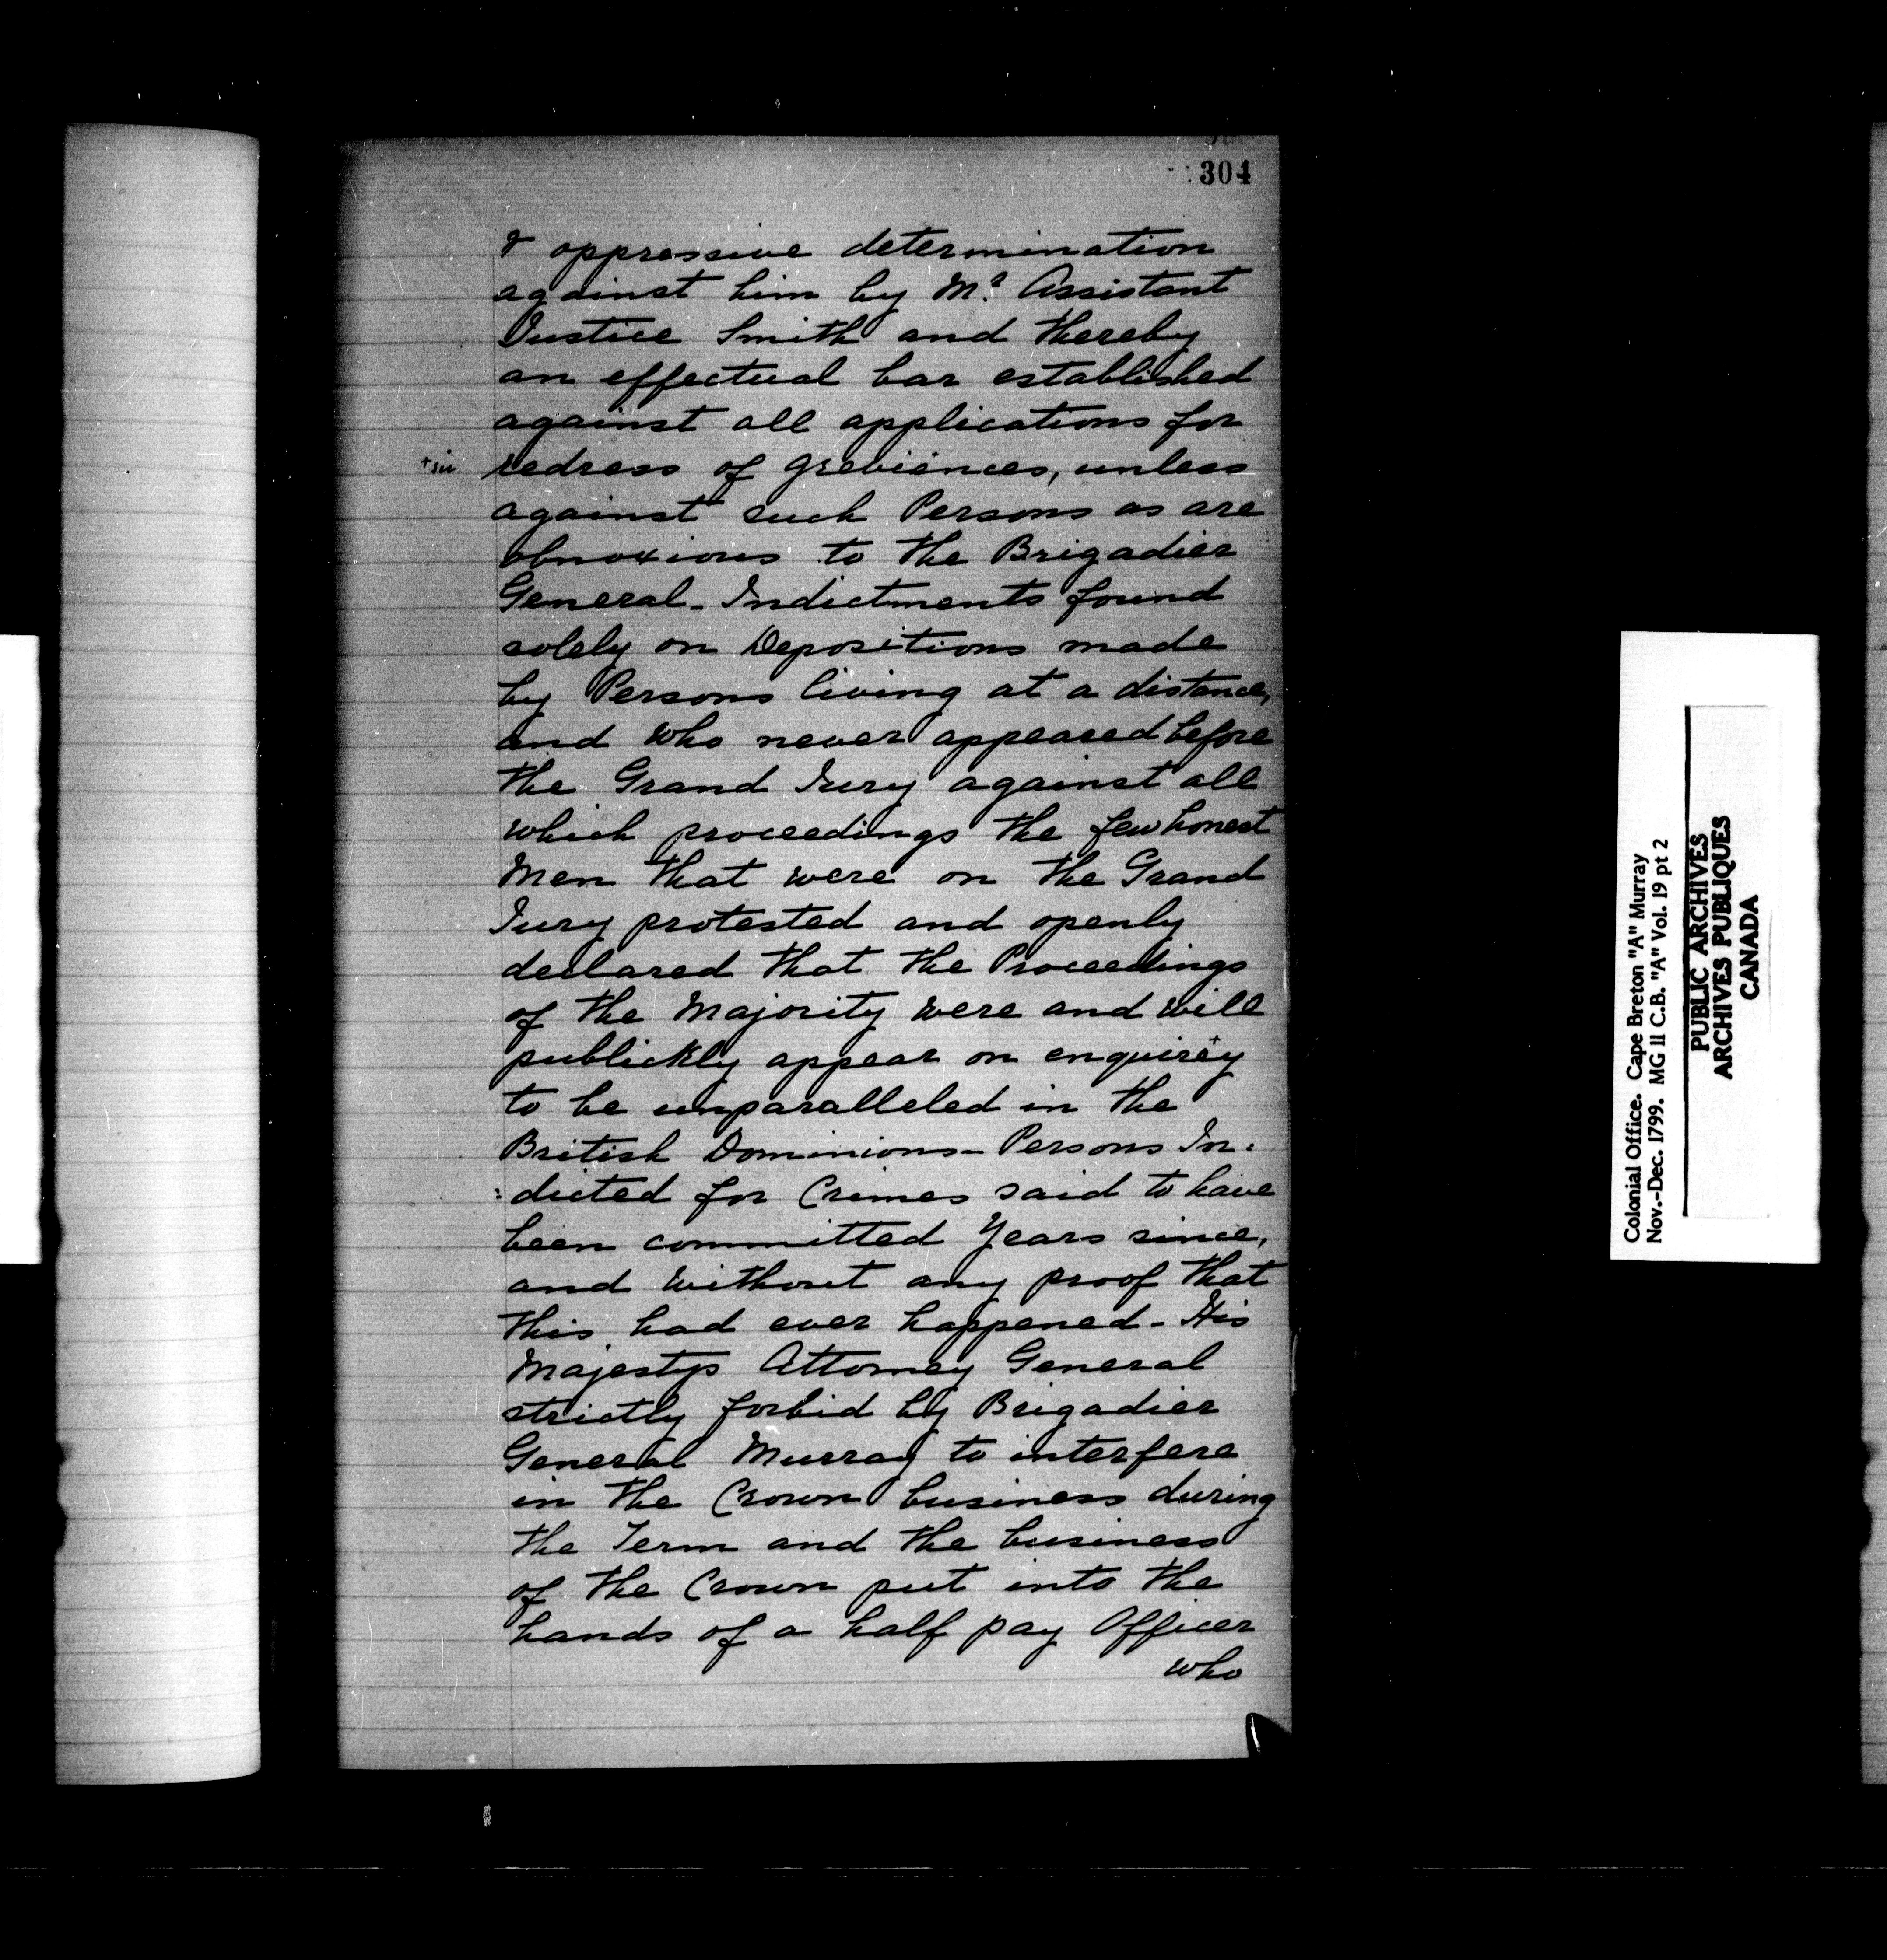 304
& oppressive determination
against him by Mr. Assistant
Justice Smith and thereby
an effectual bar established
against all applications for
+sic redress of greviences, unless
against such Persons as are
obnoxious to the Brigadier
General - Indictments found
solely on Depositions made
by Persons living at a distance,
and who never appeared before
the Grand Jury against all
which proceedings the few honest
Men that were on the Grand
Jury protested and openly
declared that the Proceedings
of the Majority were and will
publickly appear on enquirey
to be unparalleled in the
British Dominions - Persons In:
:dicted for Crimes said to have
been committed Years since,
and without any proof that
this had ever happened - His
Majestys Attorney General
strictly forbid by Brigadier
General Murray to interfere
in the Crown business during
the Term and the business
of the Crown put into the
hands of a half pay Officer
who
Colonial Office. Cape Breton "A" Murray
Nov.-Dec. 1799. MG 11 C.B. "A" Vol. 19 pt 2
PUBLIC ARCHIVES
ARCHIVES PUBLIQUES
CANADA